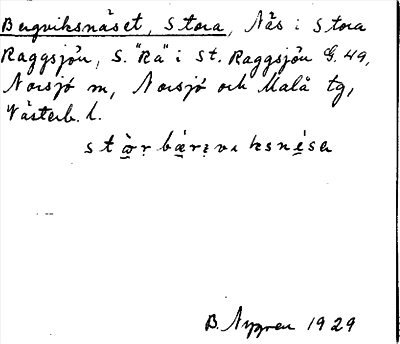 Bergviksnäset, Stora, Näs i Stora
Raggsjön, S. "Rå" i St. Raggsjön G. 49,
Norsjö m, Norsjö och Malå tg,
Västerb. l.
B. Nygren 1929